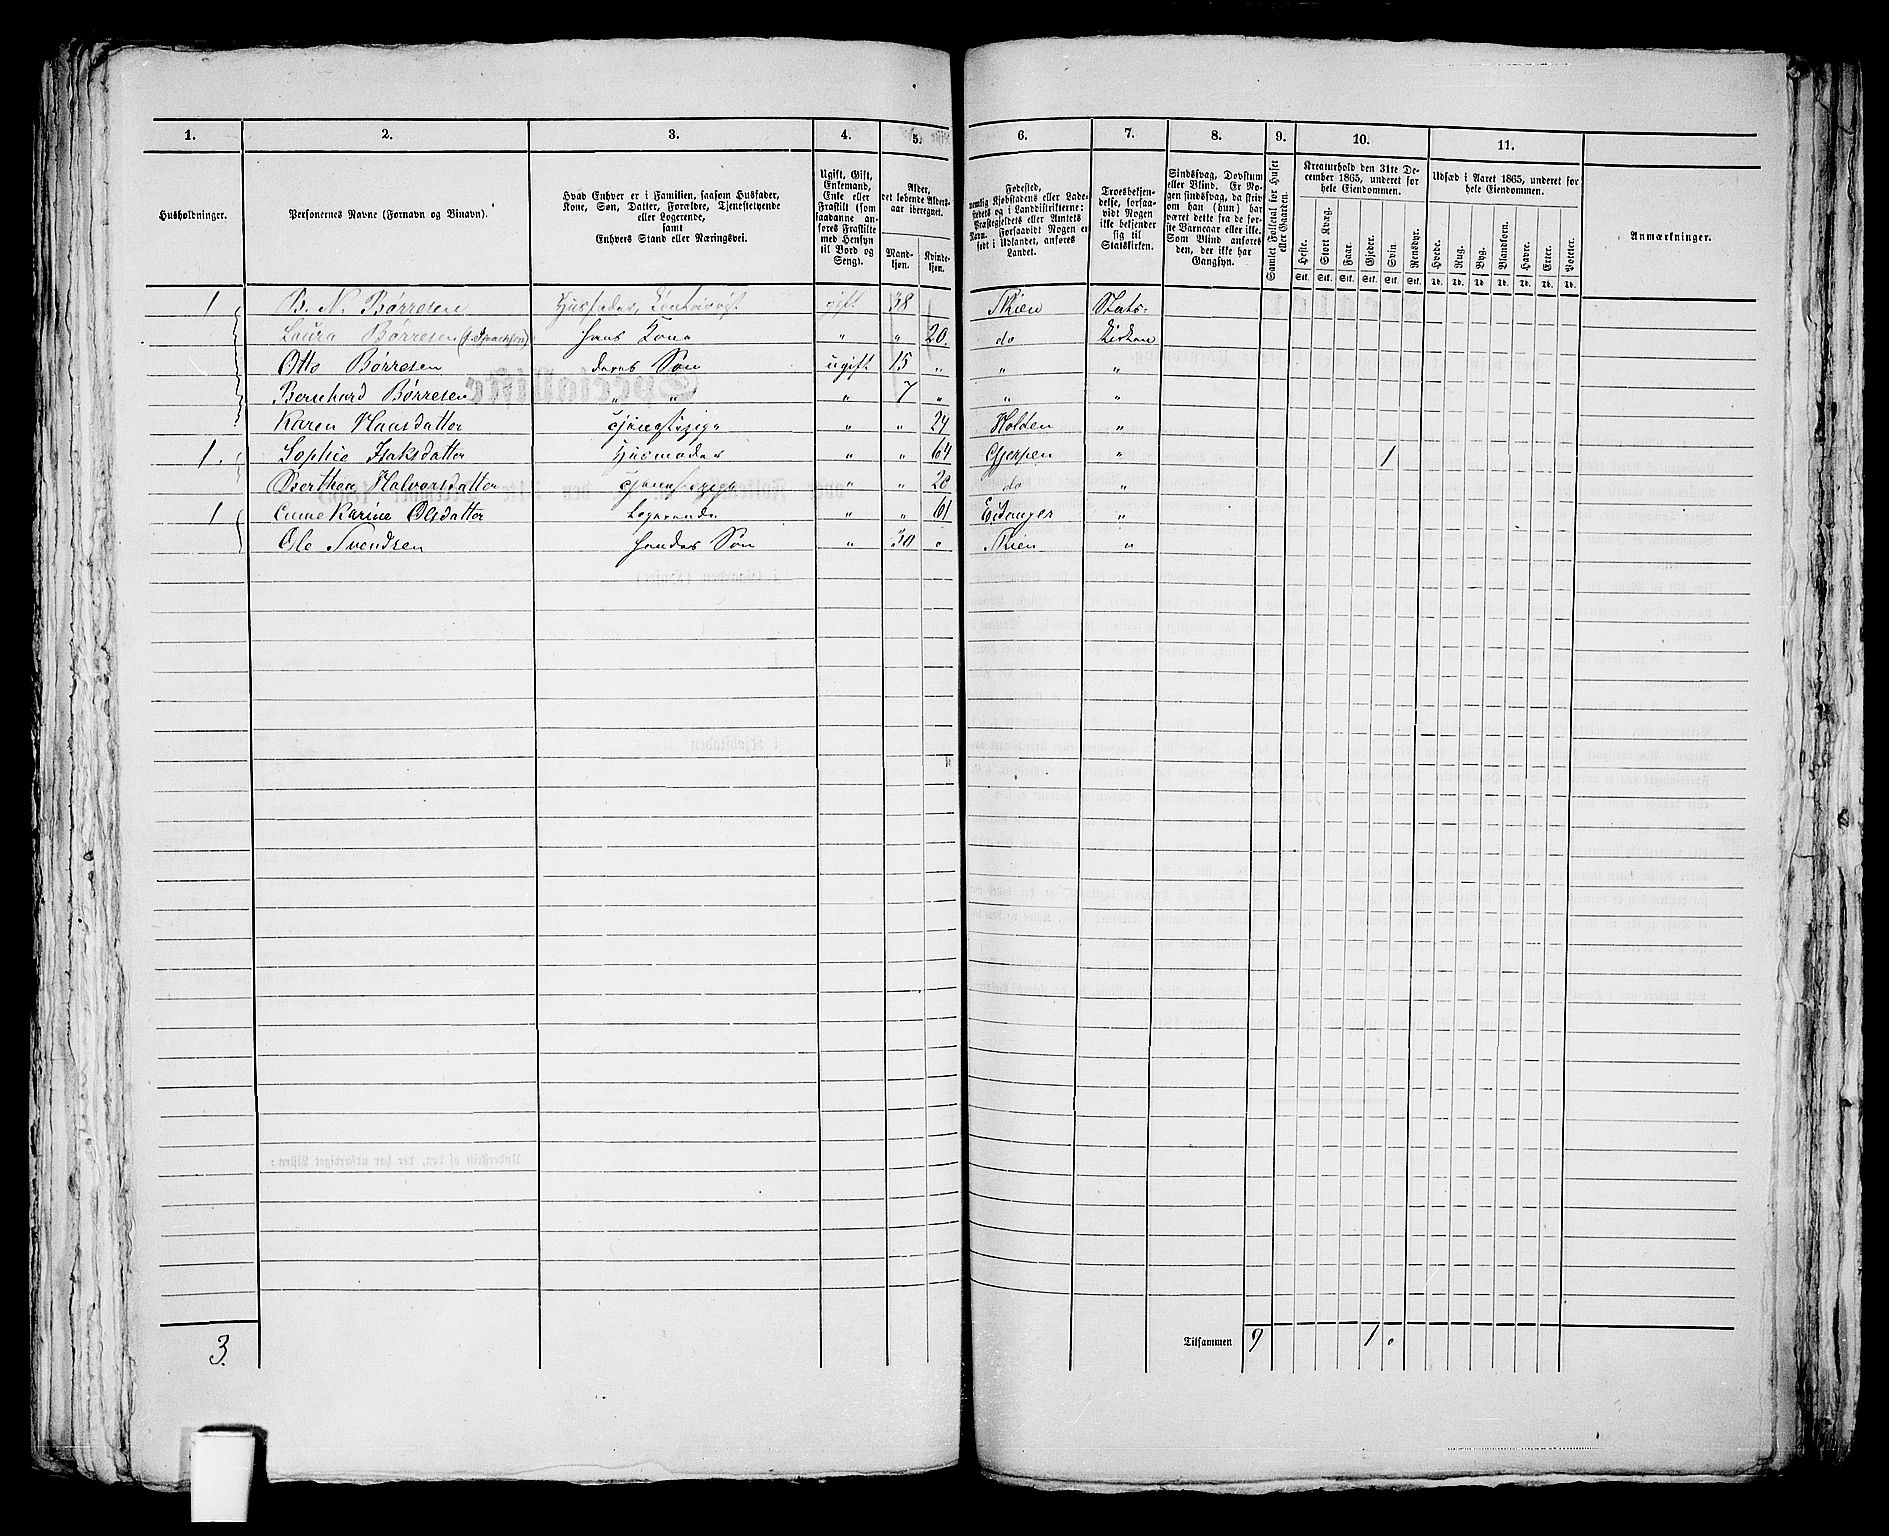 1. 2. 3. 4. 5. 6. 7. 8. 9. 10. 11.
Husholdninger.
Personernes Navne (Fornavn og Binavn).
Hvad Enhver er i Familien, saasom Husfader,
Kone, Søn, Datter, Forældre, Tjenestetyende
eller Logerende,
samt
Enhvers Stand eller Næringsvei.
Ugift, Gift,
Enkemand,
Enke eller
Fraskilt (som
saadanne an-
føres Fraskilte
med Hensyn
til Bord og
Seng).
Alder,
det løbende Alders-
aar iberegnet.
Mand-
kjøn.
Kvinde-
kjøn.
Fødested,
nemlig Kjøbstadens eller Lade-
stedets og i Landdistrikterne:
Præstegjeldets eller Amtets
Navn. Forsaavidt Nogen er
født i Udlandet, anføres
Landet.
Troesbekjen-
delse, forsaa-
vidt Nogen
ikke bekjender
sig til
Statskirken.
Sindssvag, Døvstum
eller Blind. Er No-
gen sindssvag, da skriv
om han (hun) har
været dette fra de før-
ste Barneaar eller ikke.
Som Blind anføres
den, der ikke har
Gangsyn.
Samlet Folketal for Huset
eller Gaarden.
Kreaturhold den 31te De-
cember 1865, underet for
hele Eiendommen.
Heste. Stort Kvæg. Faar. Gjeder. Svin. Rensdyr.
Stk. Stk. Stk. Stk. Stk. Stk.
Udsæd i Aaret 1865, underet for
hele Eiendommen.
Hvede. Rug. Byg. Blandkorn. Havre. Erter. Poteter.
Td. Td. Td. Td. Td. Td. Td.
Anmærkninger.
1 B. N. Børresen Husfader, gift 38 Skien Stats-
Laura Børresen hans Kone " " 20 do Kirken
Otto Børresen deres Søn ugift 15 " " "
Bernhard Børresen " " " 7 " " "
Karen Hansdatter Tjenestepige " " 24 Holden "
1. Sophie Isaksdatter Husmoder " " 64 Gjerpen " 1
Berthea Halvorsdatter Tjenestepige " " 20 do "
1 Anne Karine Olsdatter Logerende " " 61 Eidanger "
Ole Svendsen hendes Søn " 30 " Skien "
3. Tilsammen 9 1